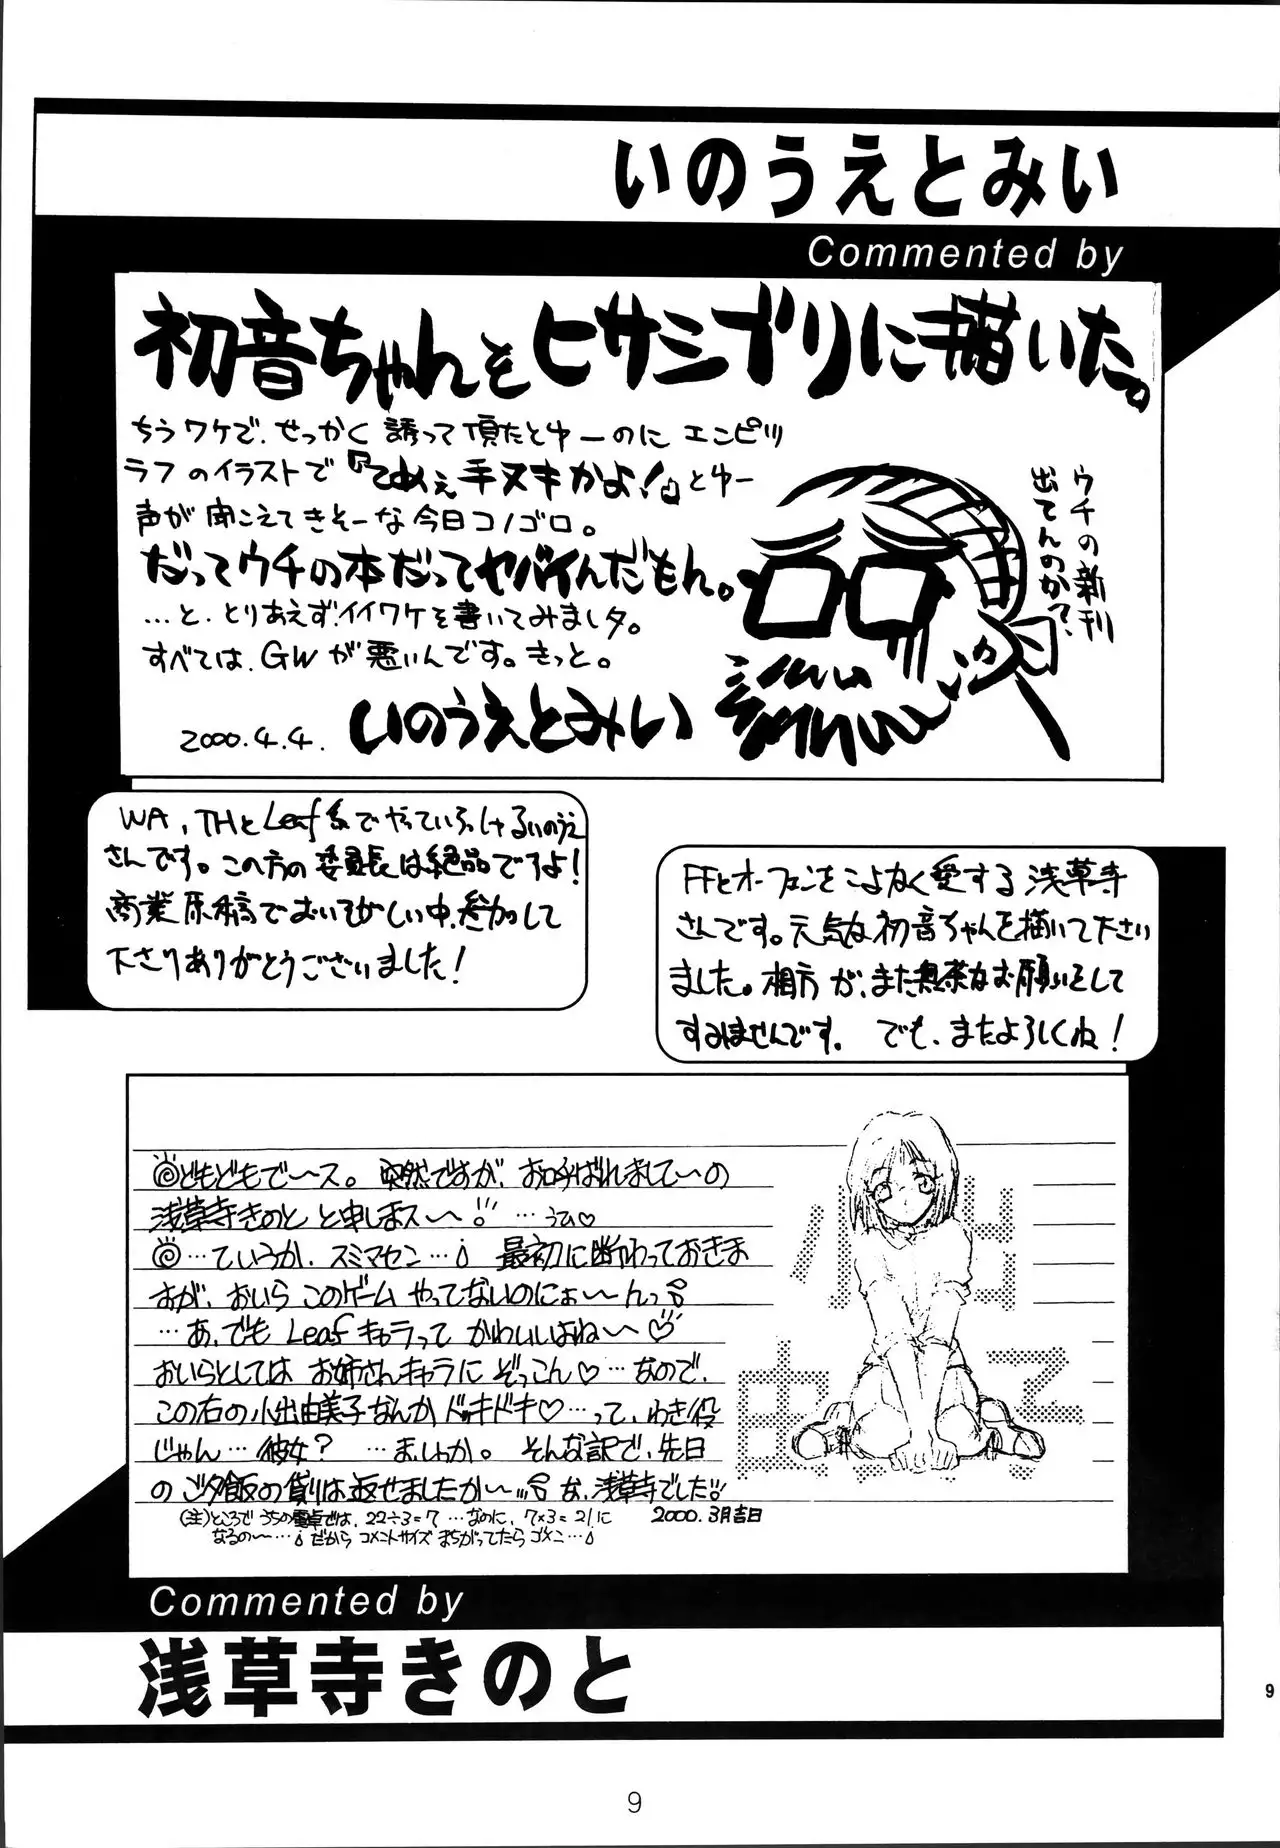 いのうえとみい
Commented by
初音ちゃんをヒサシブリに描いた。
ちうワケで、せっかく誘って頂たとゆーのにエンピツ
ラフのイラストで『てめぇ手ヌキかよ!』とゆー
声が聞こえてきそーな今日コノゴロ。
だってウチの本だってヤバイんだもん。
…と、とりあえずイイワケを書いてみましタ。
すべては、GWが悪いんです。きっと。
2000.4.4. いのうえとみい
ウチの新刊
出てんのか?
WA、THとLeaf系でやっていらっしゃるいのうえ
さんです。この方の委員長は絶品ですよ!
商業原稿でおいそがしい中、参加して
下さりありがとうございました!
FFとオーフェンをこよなく愛する浅草寺
さんです。元気な初音ちゃんを描いて下さい
ました。相方が、また無茶なお願いをして
すみませんです。 でも、またよろしくね!
どもどもで〜ス。 突然ですが、お呼ばれしまして〜の
浅草寺きのと と申しまス〜! …うひ♡
…ていうか、スミマセン… 最初に断わっておきま
すが、おいら このゲーム やってないのにぉ〜んっ
…あ、でも Leafキャラって かわいいよね〜♡
おいらとしては お姉さんキャラに ぞっこん♡…なので、
この右の小出由美子なんか ドッキドキ♡…って、わき役
じゃん…彼女? …ま、しゃーか。 そんな訳で、先日
のご夕飯の貸りは返せましたか〜… な、浅草寺でした!!
(注)ところで うちの電卓では、22÷3=7 …なのに、7×3=21に
なるの〜… だから コメントサイズ まちがってたら ゴメン…
2000.3月吉日
小出
由美子
Commented by
浅草寺きのと
9
9